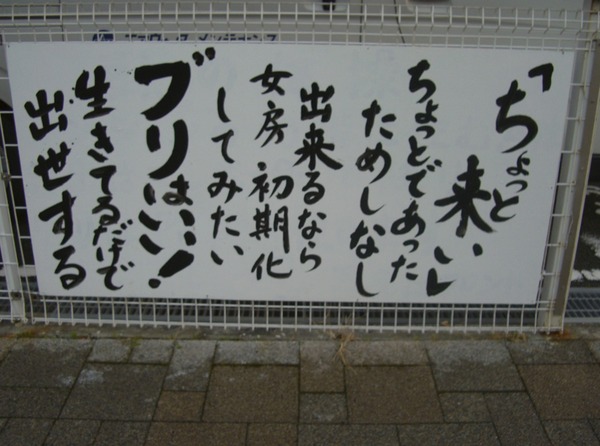 「ちょっと
来い」
ちょっとであった
ためしなし
出来るなら
女房 初期化
してみたい
ブリはいい!
生きてるだけで
出世する